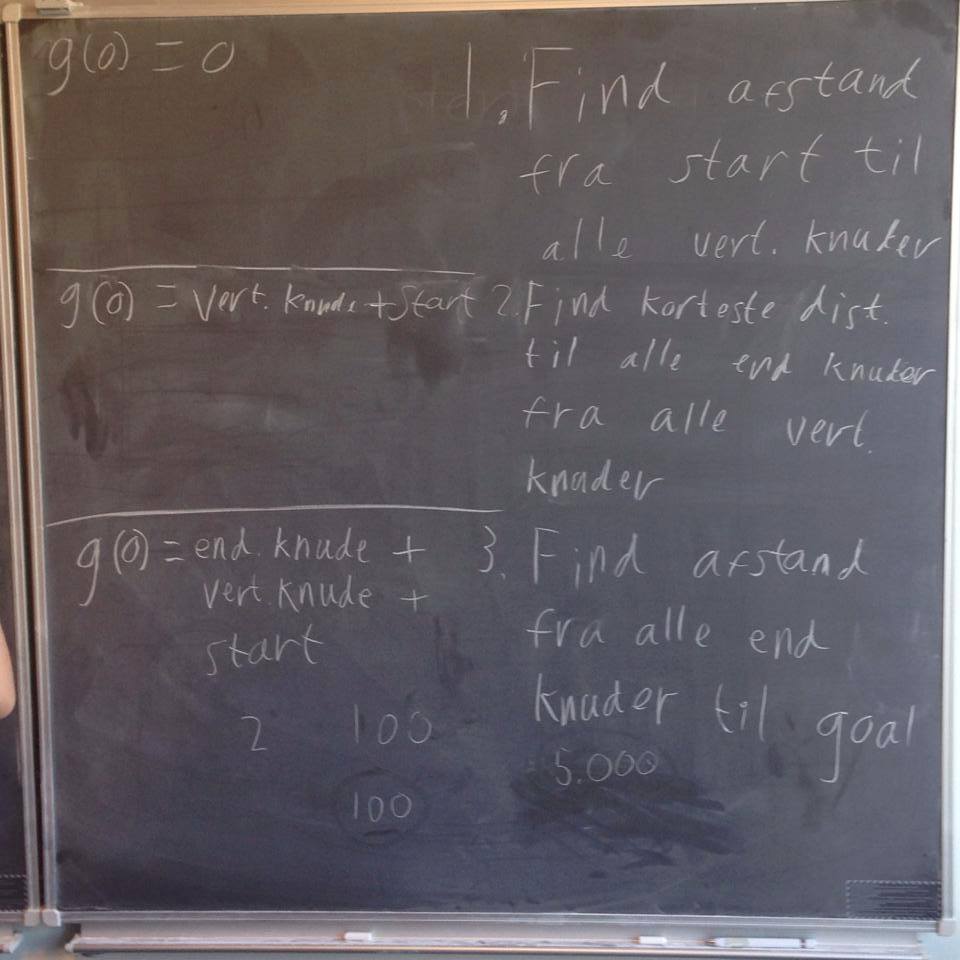 g(0) = 0
1. Find afstand
fra start til
alle vert. knuder
g(0) = vert. knude + start
2. Find korteste dist.
til alle end knuder
fra alle vert.
knuder
g(0) = end. knude +
vert. knude +
start
3. Find afstand
fra alle end
knuder til goal
2 100
5.000
100